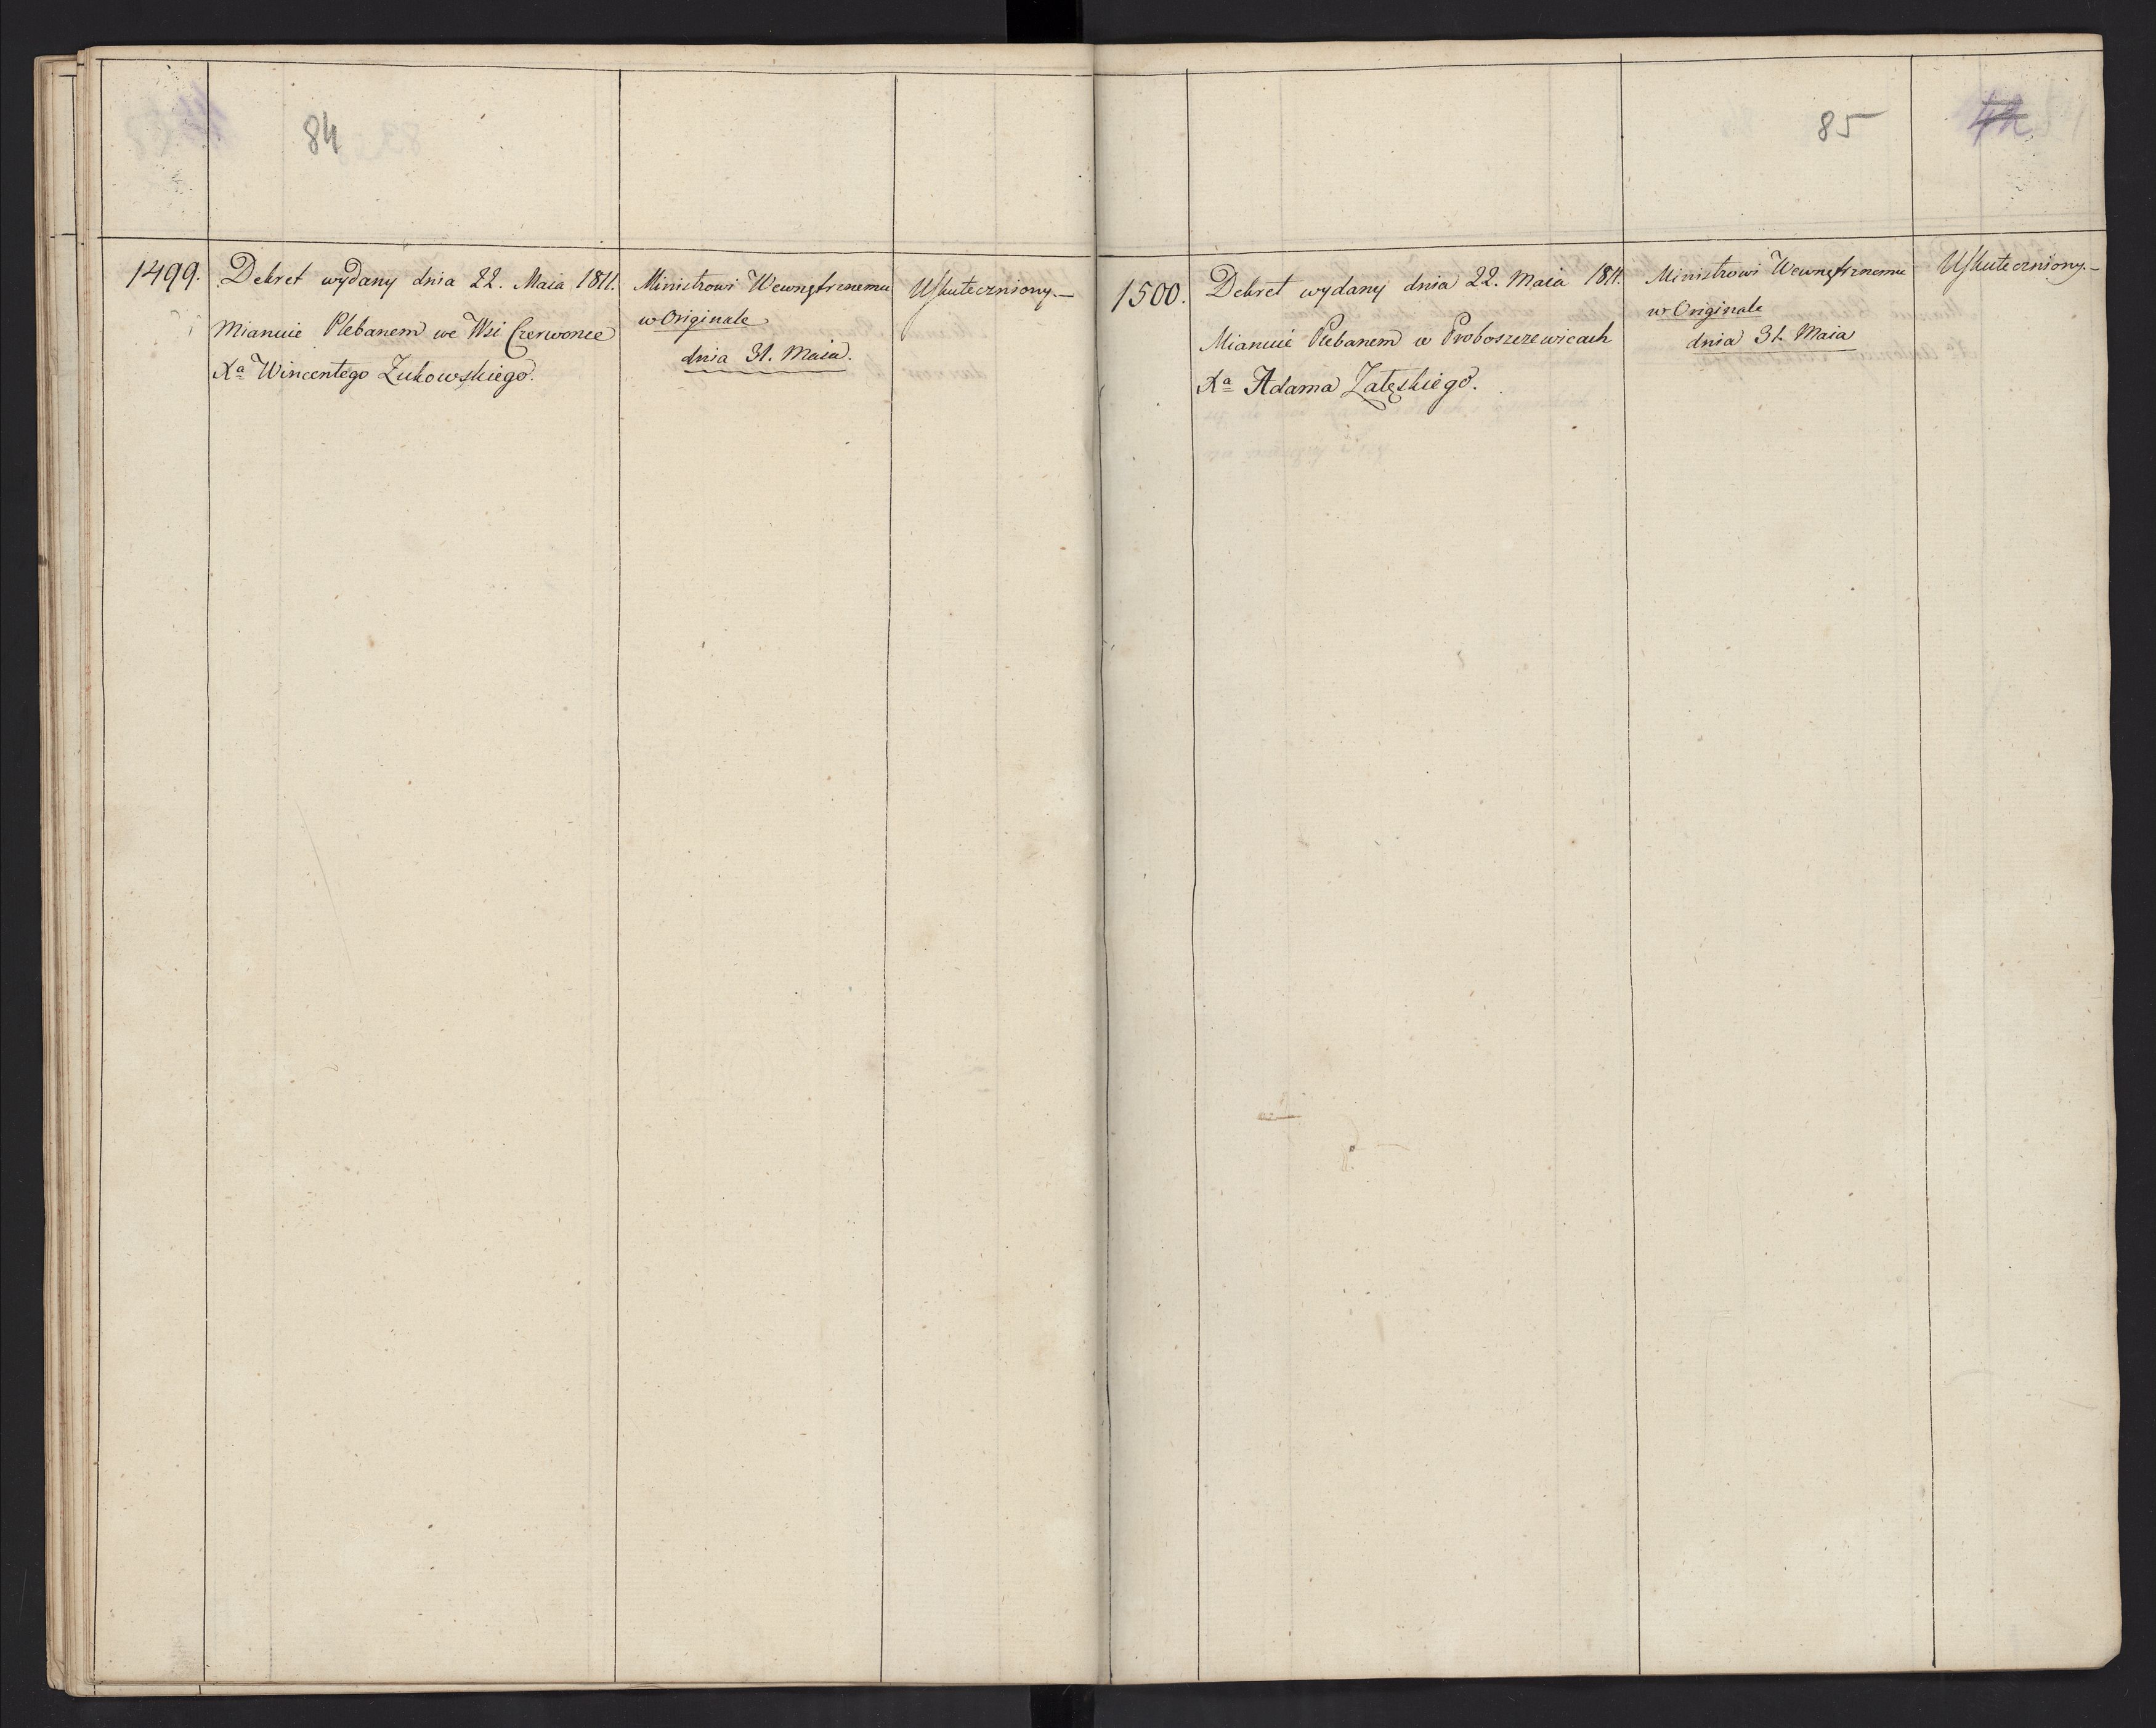 84
1499.
Dekret wydany dnia 22. Maia 1811.
Mianuie Plebanem we Wsi Czerwonce
Xa Wincentego Zukowskiego.
Ministrowi Wewnętrznemu
w Originale
dnia 31. Maia.
Uskuteczniony.—
85
1500.
Dekret wydany dnia 22. Maia 1811.
Mianuie Plebanem w Proboszczewicach
Xa Adama Załęskiego.
Ministrowi Wewnętrznemu
w Originale
dnia 31. Maia
Uskuteczniony.—